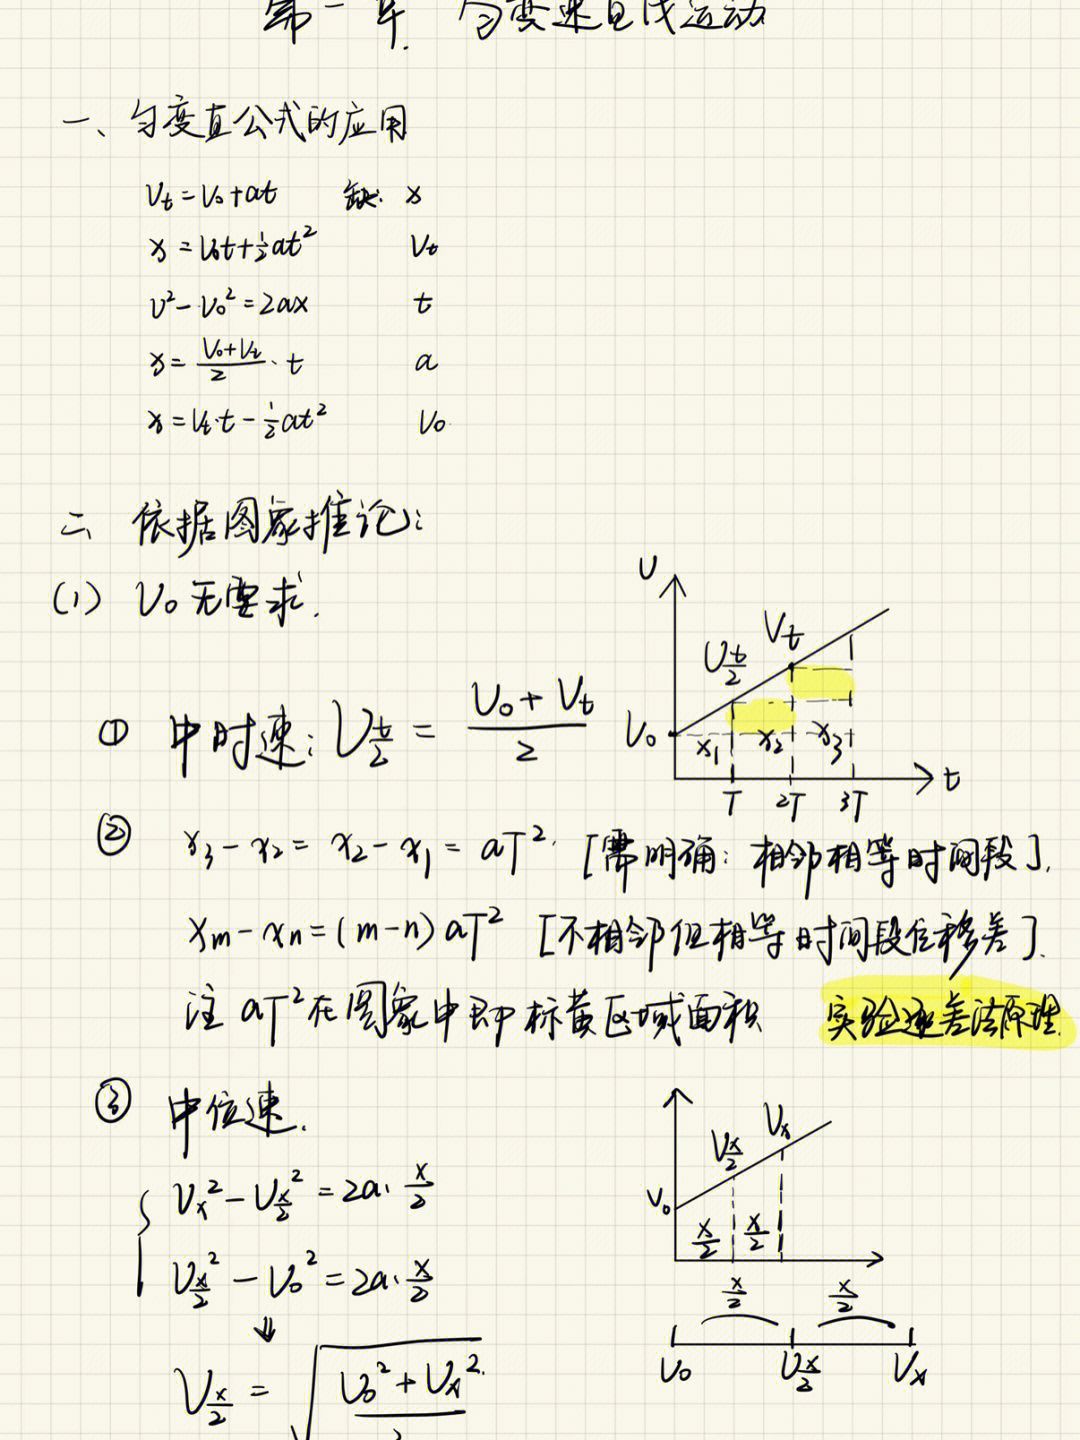 第一章. 匀变速直线运动
一、匀变直公式的应用
Vt = V0 + at 缺: x
x = V0t + 1/2 at² Vt
V² - V0² = 2ax t
x = (V0 + Vt)/2 · t a
x = Vt·t - 1/2 at² V0
二、依据图象推论:
(1) V0 无要求.
① 中时速: V t/2 = (V0 + Vt)/2
V
Vt
V t/2
V0
x1 x2 x3
t
T 2T 3T
② x3 - x2 = x2 - x1 = aT². [需明确: 相邻相等时间段].
xm - xn = (m-n) aT² [不相邻但相等时间段位移差].
注 aT² 在图象中即标黄区域面积 实验逐差法原理.
③ 中位速.
{ Vx² - V x/2 ² = 2a · x/2
V x/2 ² - V0² = 2a · x/2
↓
V x/2 = √(V0² + Vx²)/2
Vx
V x/2
V0
x/2 x/2
x/2 x/2
V0 V x/2 Vx